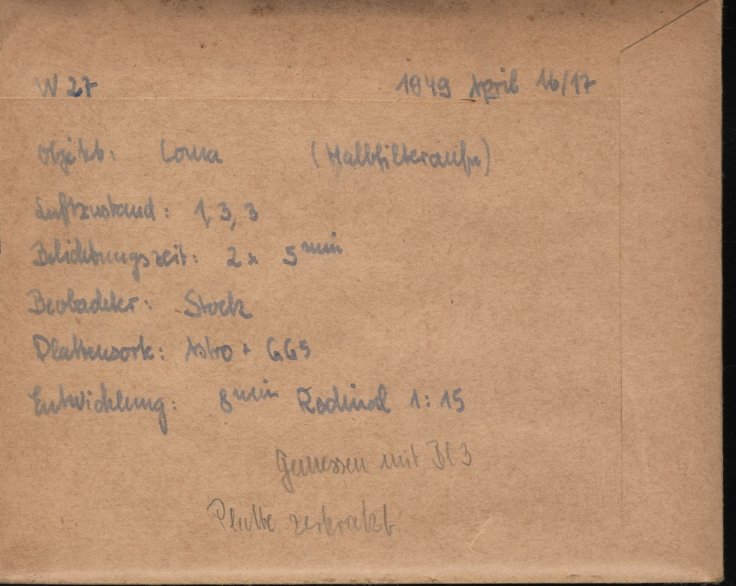 W 27 1949 April 16/17
Objekt: Coma (Halbfilteraufn)
Luftzustand: 1, 3, 3
Belichtungszeit: 2 x 5 min
Beobachter: Stock
Plattensorte: Astro + GG5
Entwicklung: 8 min Rodinal 1:15
Gemessen mit
Platte zerkratzt